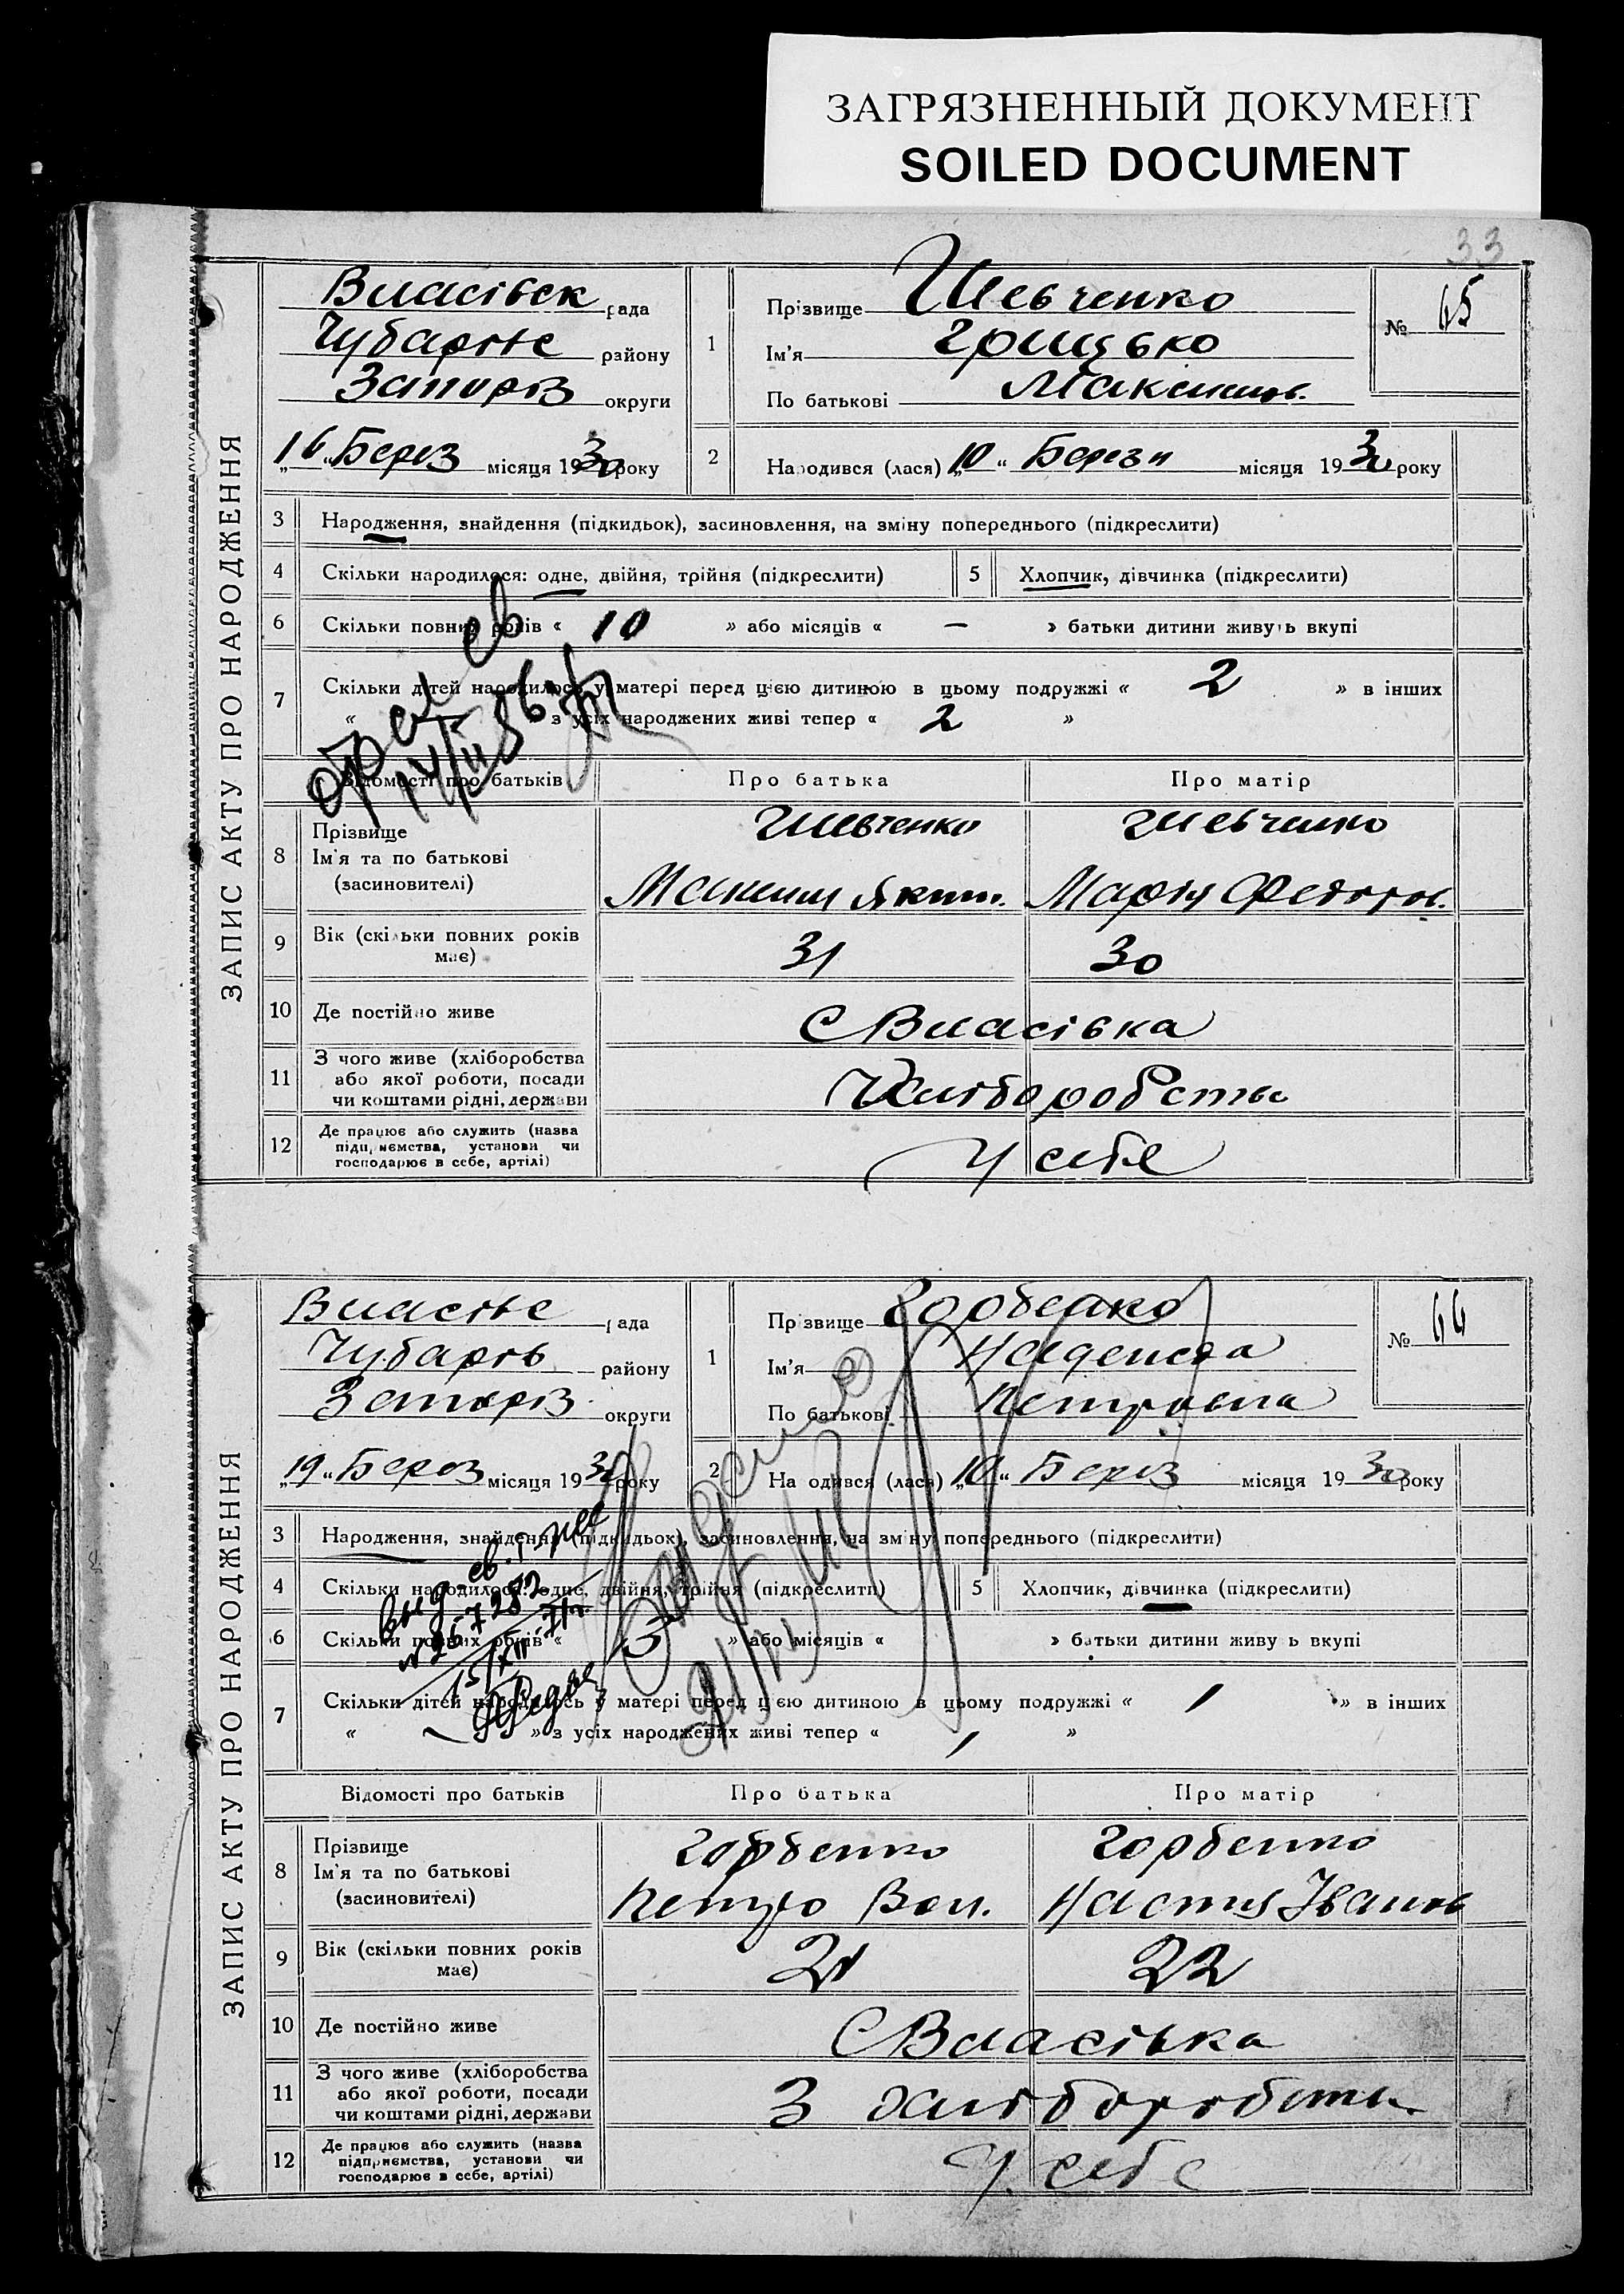 ЗАГРЯЗНЕННЫЙ ДОКУМЕНТ
SOILED DOCUMENT
33
ЗАПИС АКТУ ПРО НАРОДЖЕННЯ
Власівск рада
Чубарівс району
Запоріз округи
„16“ Берез місяця 1930 року
1
Прізвище Шевченко
Ім'я Грицько
По батькові Максимов.
№ 65
2 Народився (лася) „10“ Березн місяця 1930 року
3 Народження, знайдення (підкидьок), засиновлення, на зміну попереднього (підкреслити)
4 Скільки народилося: одне, двійня, трійня (підкреслити) 5 Хлопчик, дівчинка (підкреслити)
6 Скільки повних років « 10 » або місяців « — » батьки дитини живуть вкупі
7 Скільки дітей народилось у матері перед цією дитиною в цьому подружжі « 2 » в інших
« » з усіх народжених живі тепер « 2 »
Відомості про батьків Про батька Про матір
8 Прізвище
Ім'я та по батькові
(засиновителі)
Шевченко Шевченко
Максим Яким. Марія Федоров.
9 Вік (скільки повних років має) 31 30
10 Де постійно живе С Власівка
11 З чого живе (хліборобства
або якої роботи, посади
чи коштами рідні, держави
Хліборобства
12 Де працює або служить (назва
підприємства, установи чи
господарює в себе, артілі)
У себе
ЗАПИС АКТУ ПРО НАРОДЖЕННЯ
Власівс рада
Чубарів району
Запоріз округи
„19“ Берез місяця 1930 року
1
Прізвище Горбенко
Ім'я Надежда
По батькові Петровна
№ 66
2 Народився (лася) „10“ Берез місяця 1930 року
3 Народження, знайдення (підкидьок), засиновлення, на зміну попереднього (підкреслити)
4 Скільки народилося: одне, двійня, трійня (підкреслити) 5 Хлопчик, дівчинка (підкреслити)
6 Скільки повних років « 3 » або місяців « » батьки дитини живуть вкупі
7 Скільки дітей народилось у матері перед цією дитиною в цьому подружжі « 1 » в інших
« — » з усіх народжених живі тепер « 1 »
Відомості про батьків Про батька Про матір
8 Прізвище
Ім'я та по батькові
(засиновителі)
Горбенко Горбенко
Петро Вол. Настя Іванов
9 Вік (скільки повних років має) 21 22
10 Де постійно живе С Власівка
11 З чого живе (хліборобства
або якої роботи, посади
чи коштами рідні, держави
З хліборобства
12 Де працює або служить (назва
підприємства, установи чи
господарює в себе, артілі)
У себе